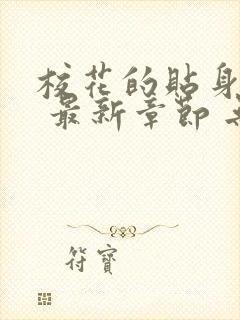 校花的貼身
最新章節
符寶